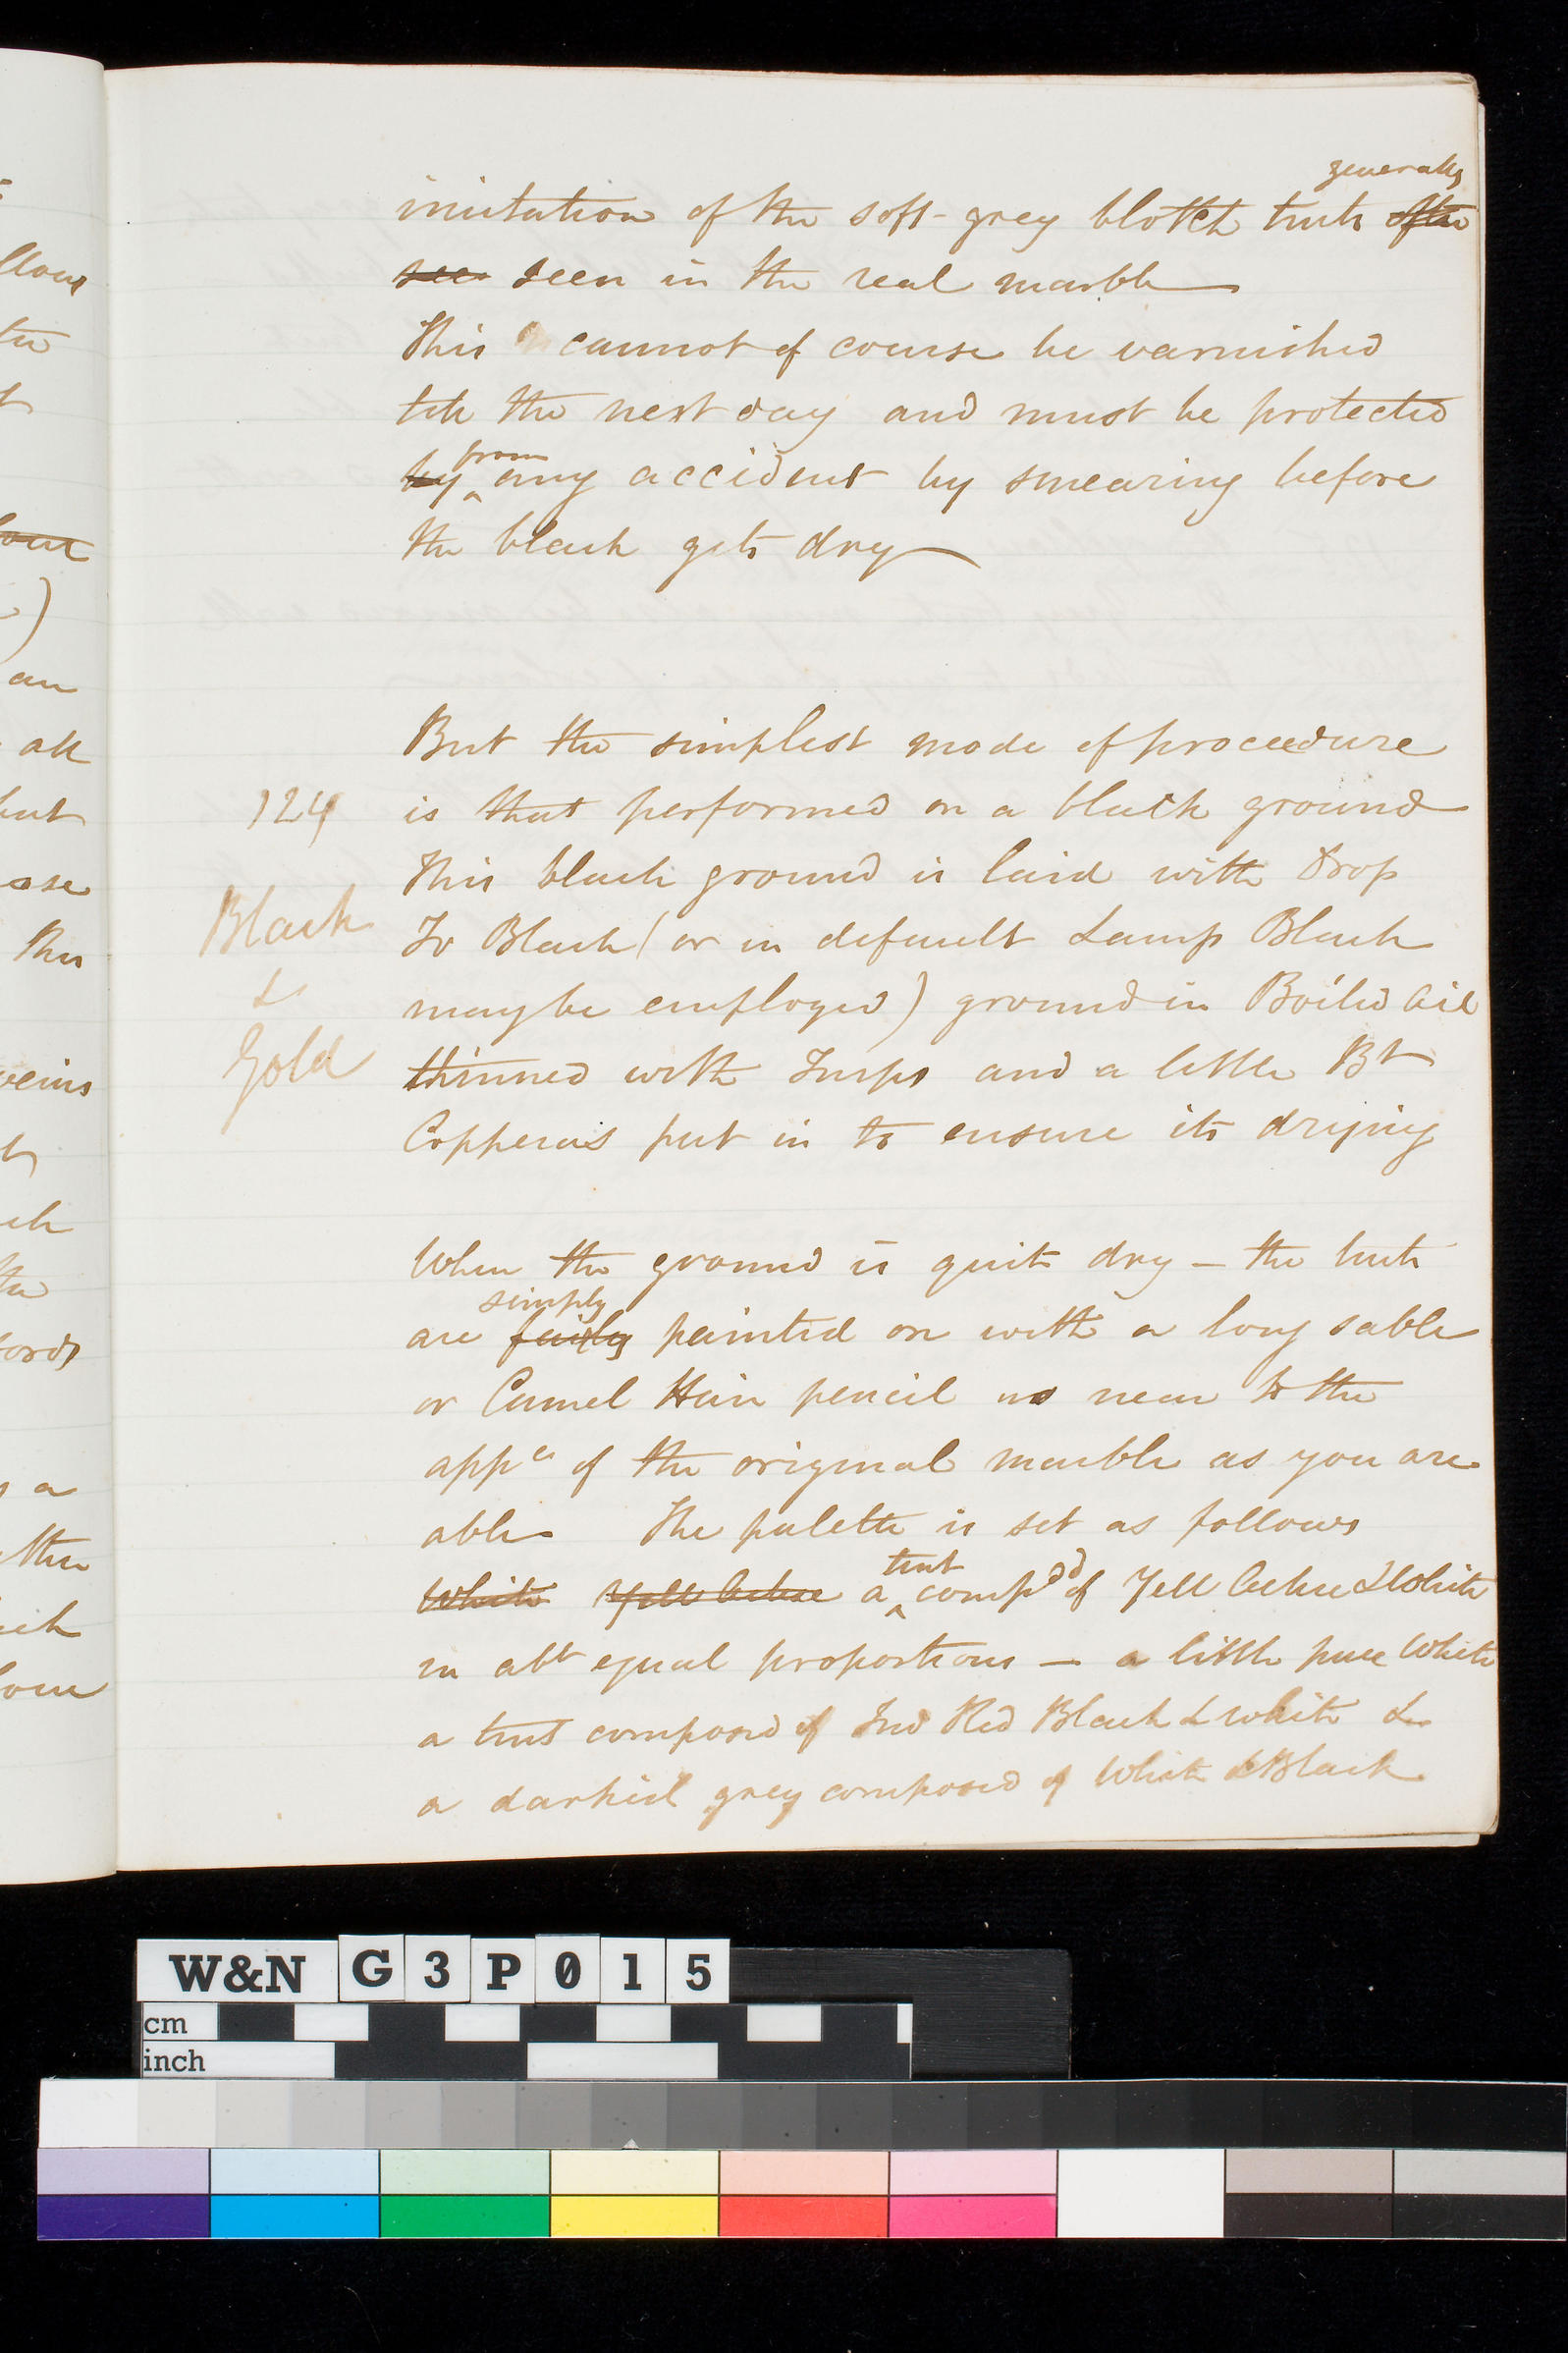 generally
imitation of the soft-grey blotch tints often
see seen in the real marble
This cannot of course be varnished
till the next day and must be protected
from
by any accident by smearing before
the black gets dry
But the simplest mode of proceedure
124
is that performed on a black ground
This black ground is laid with Drop
Black
&
Gold
Iv Black (or in default Lamp Black
may be employed) ground in Boiled Oil
thinned with Turps and a little Bt
Copperas put in to ensure its drying
When the ground is quite dry - the tints
simply
are fairly painted on with a long sable
or Camel Hair pencil as near to the
appce of the original marble as you are
able. The palette is set as follows
tint
White Yell Ochre a compdd of Yell Ochre & White
in abt equal proportions - a little pure White
a tint composed of Ind Red Black & White &
a darkish grey composed of White & Black
llow
ter
t
)
an
all
but
ose
This
veins
ords
s a
ther
W&N G 3 P 0 1 5
cm
inch